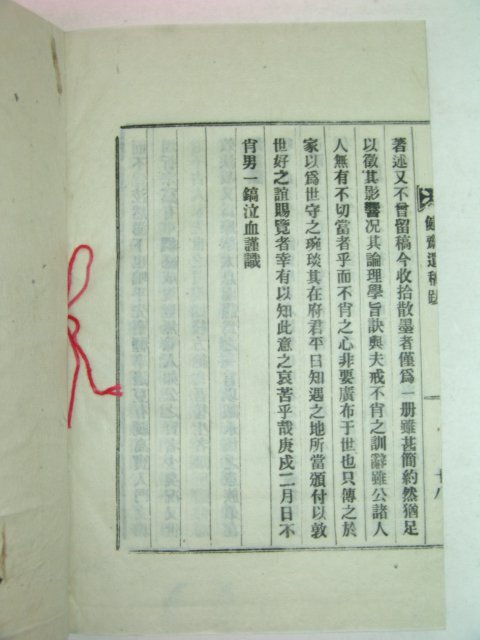 著述又不曾留稿今收拾散墨者僅爲一册雖甚簡約然猶足
以徵其影響況其論理學旨訣與夫戒不肖之訓辭雖公諸人
人無有不切當者乎而不肖之心非要廣布于世也只傳之於
家以爲世守之琬琰其在府君平日知遇之地所當頒付以敦
世好之誼賜覽者幸有以知此意之哀苦乎哉庚戌二月日不
肖男一鎬泣血謹識
遺稿跋
十八